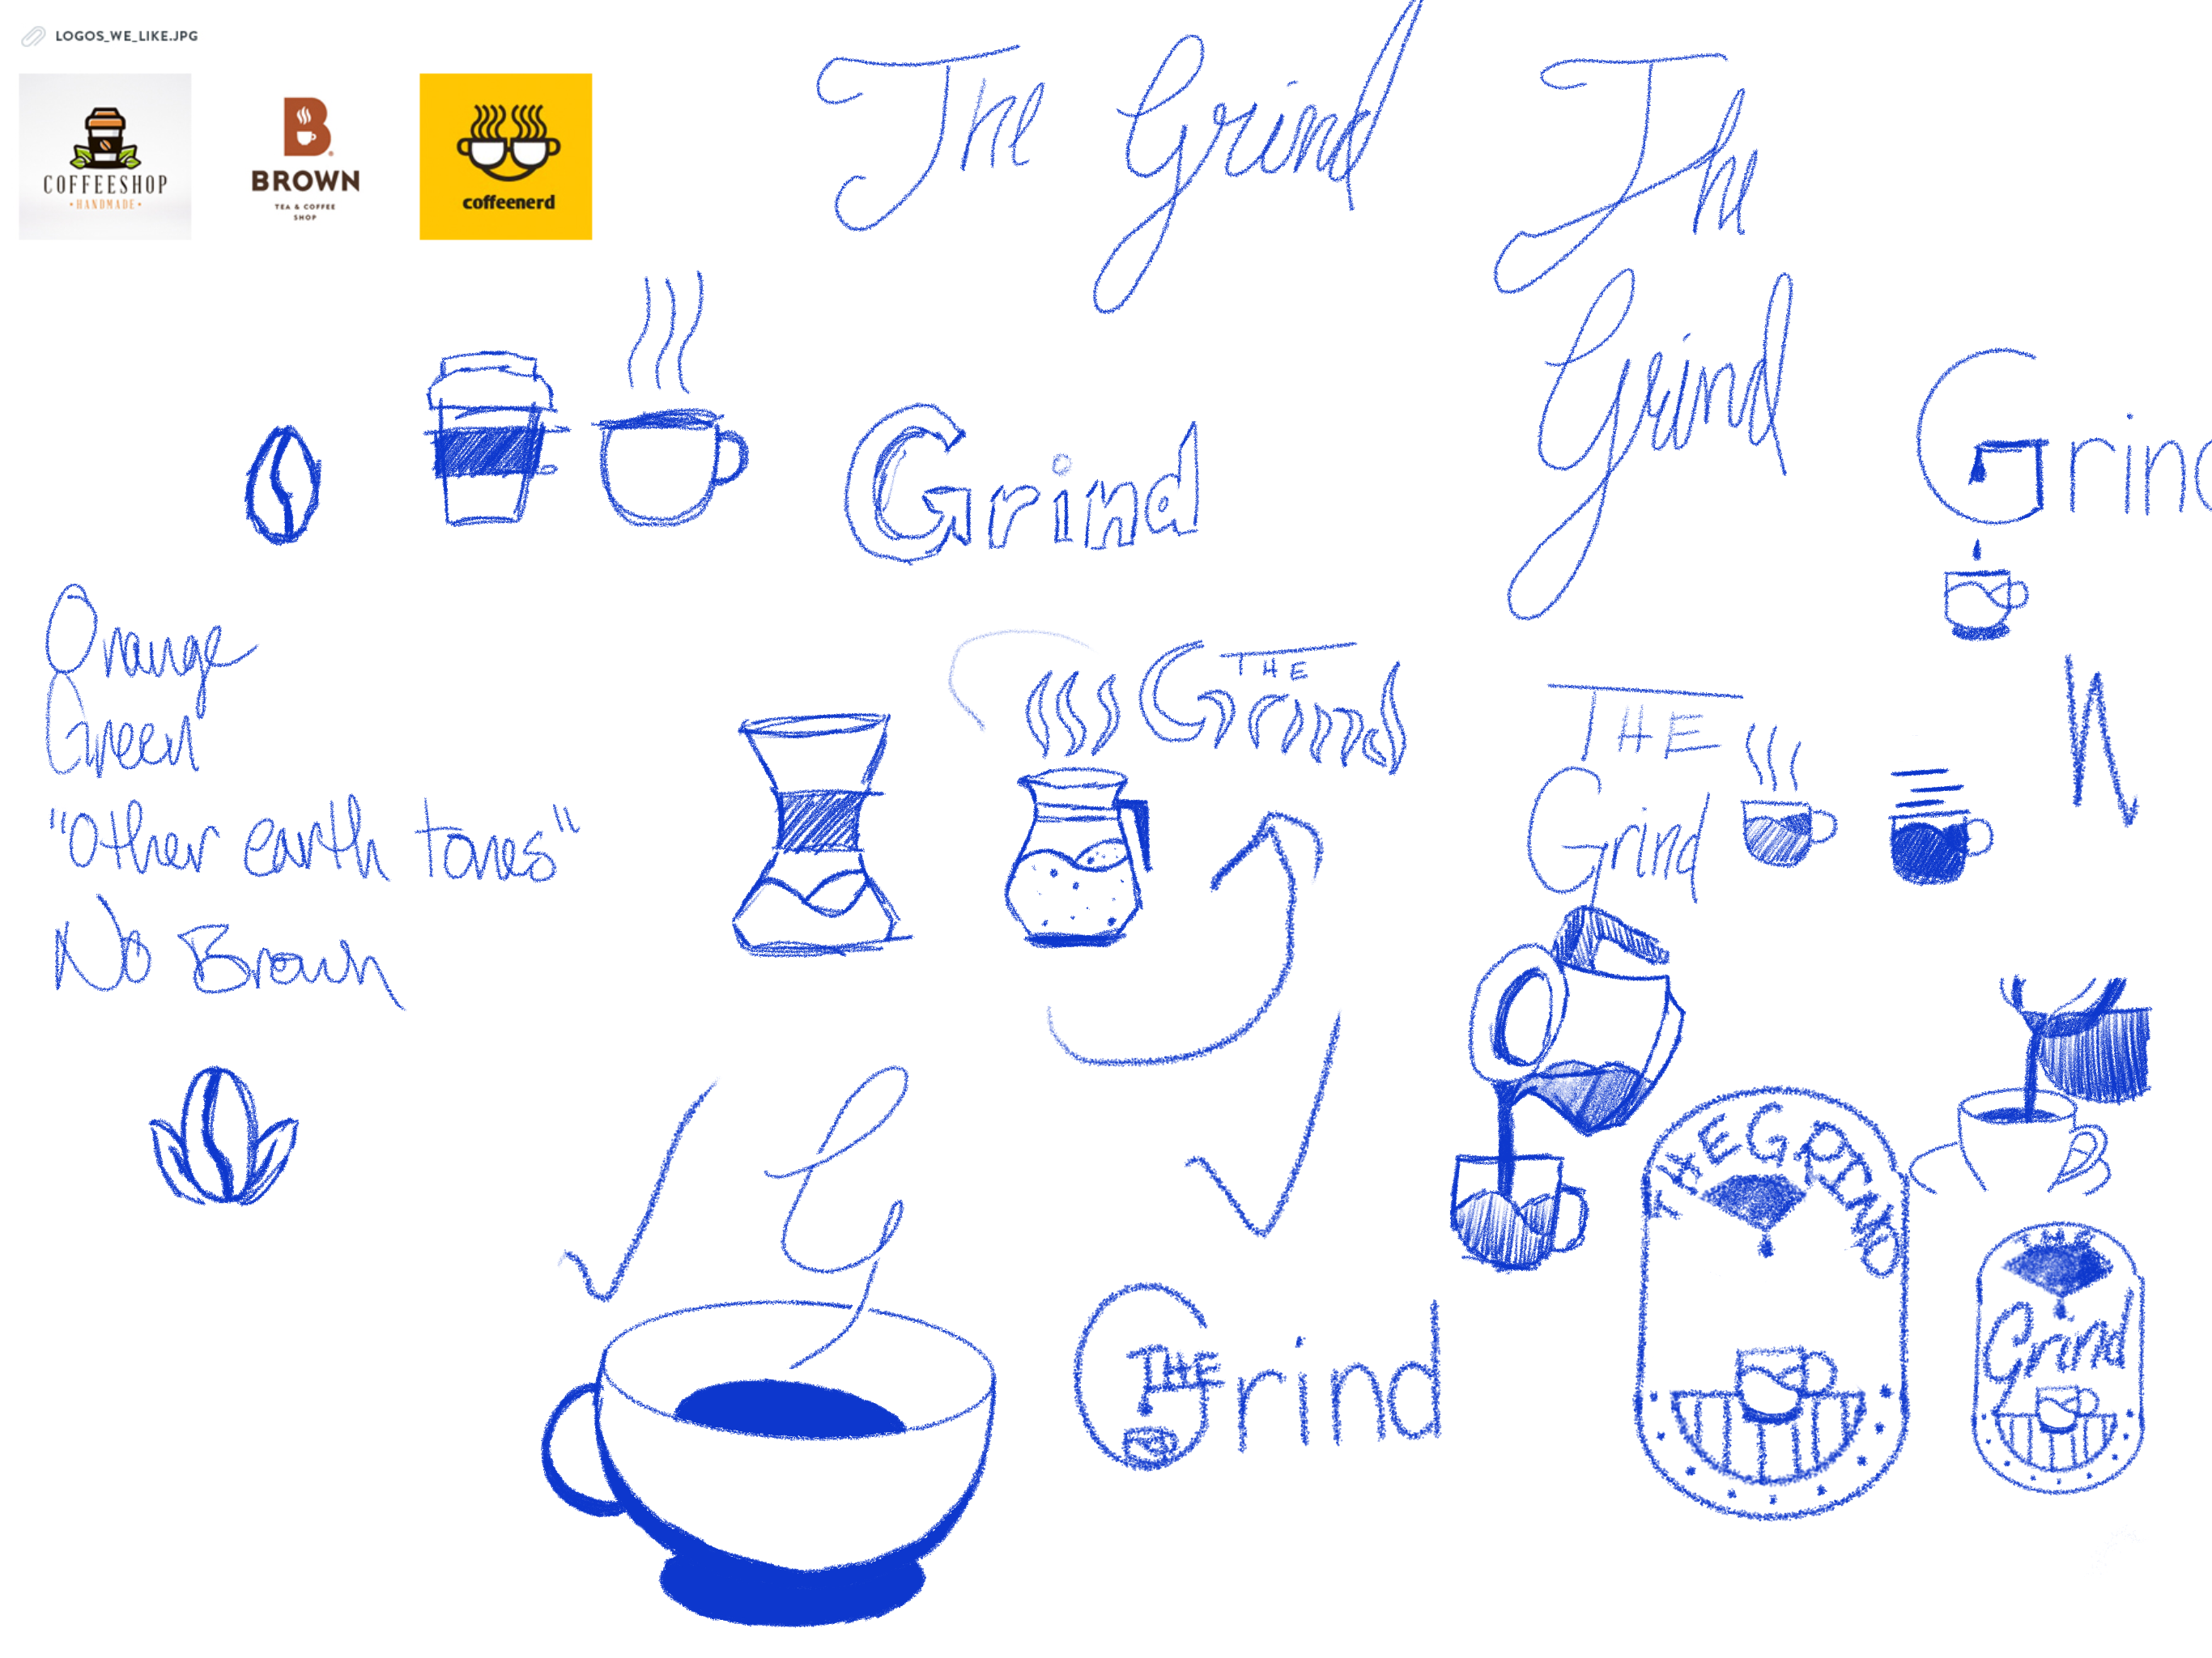 LOGOS_WE_LIKE.JPG
COFFEESHOP
• HANDMADE •
B
BROWN
TEA & COFFEE
SHOP
coffeenerd
The Grind
The
Grind
Grind
Grind
Orange
Green
"Other earth tones"
No Brown
THE
Grind
THE
Grind
G
THE
Grind
THE GRIND
THE
Grind